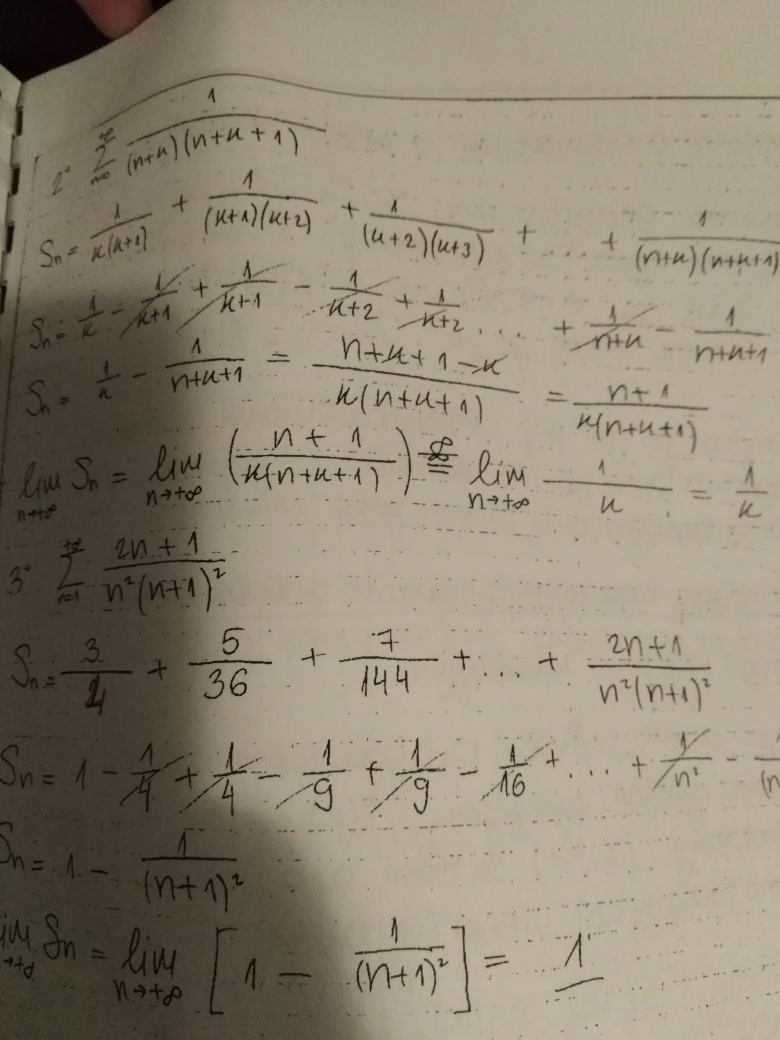 2° ∑_{n=0}^{∞} 1/((n+k)(n+k+1))
Sn = 1/(k(k+1)) + 1/((k+1)(k+2)) + 1/((k+2)(k+3)) + ... + 1/((n+k)(n+k+1))
Sn = 1/k - 1/(k+1) + 1/(k+1) - 1/(k+2) + 1/(k+2) ... + 1/(n+k) - 1/(n+k+1)
Sn = 1/k - 1/(n+k+1) = (n+k+1-k)/(k(n+k+1)) = (n+1)/(k(n+k+1))
lim_{n→+∞} Sn = lim_{n→+∞} ((n+1)/(k(n+k+1))) =^{∞/∞} lim_{n→+∞} 1/k = 1/k
3° ∑_{n=1}^{+∞} (2n+1)/(n²(n+1)²)
Sn = 3/4 + 5/36 + 7/144 + ... + (2n+1)/(n²(n+1)²)
Sn = 1 - 1/4 + 1/4 - 1/9 + 1/9 - 1/16 + ... + 1/n² - 1/(n
Sn = 1 - 1/(n+1)²
lim_{→+∞} Sn = lim_{n→+∞} [1 - 1/(n+1)²] = 1